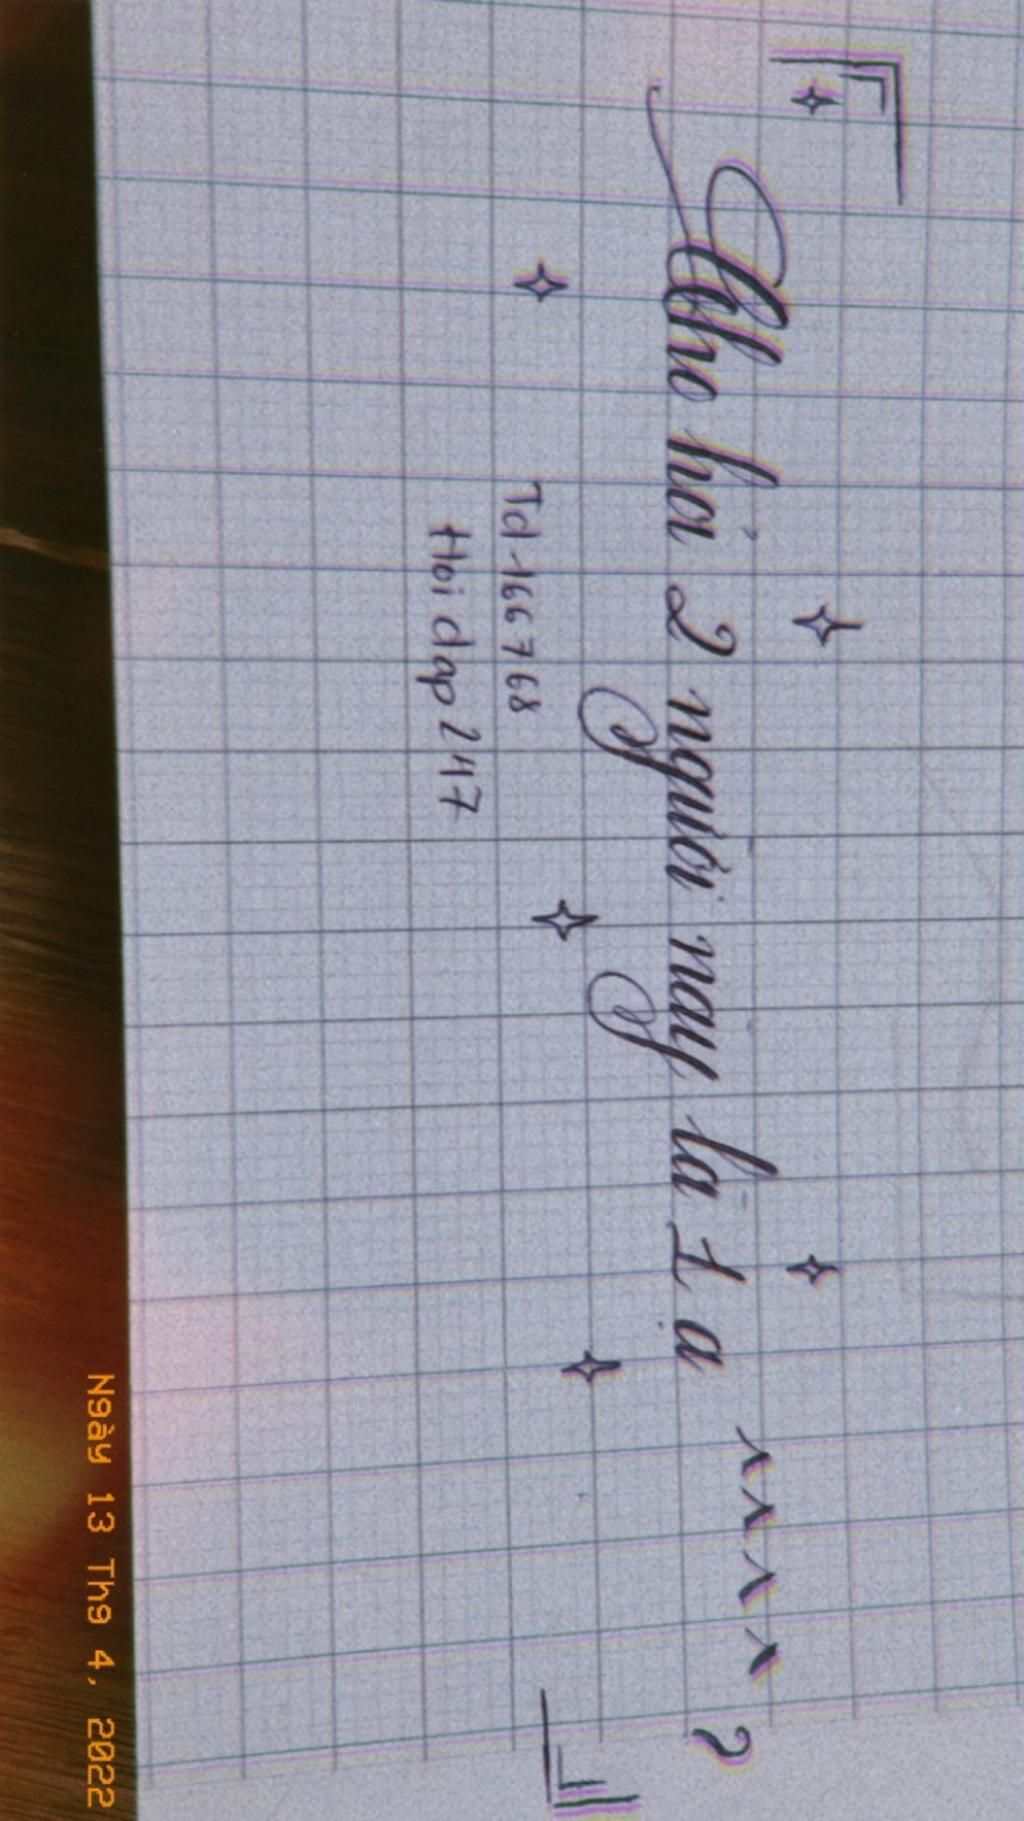 Cho hỏi 2 người nay là 1 ạ ^^^^ ?
Td-166768
Hoi dap 247
Ngày 13 Thg 4, 2022